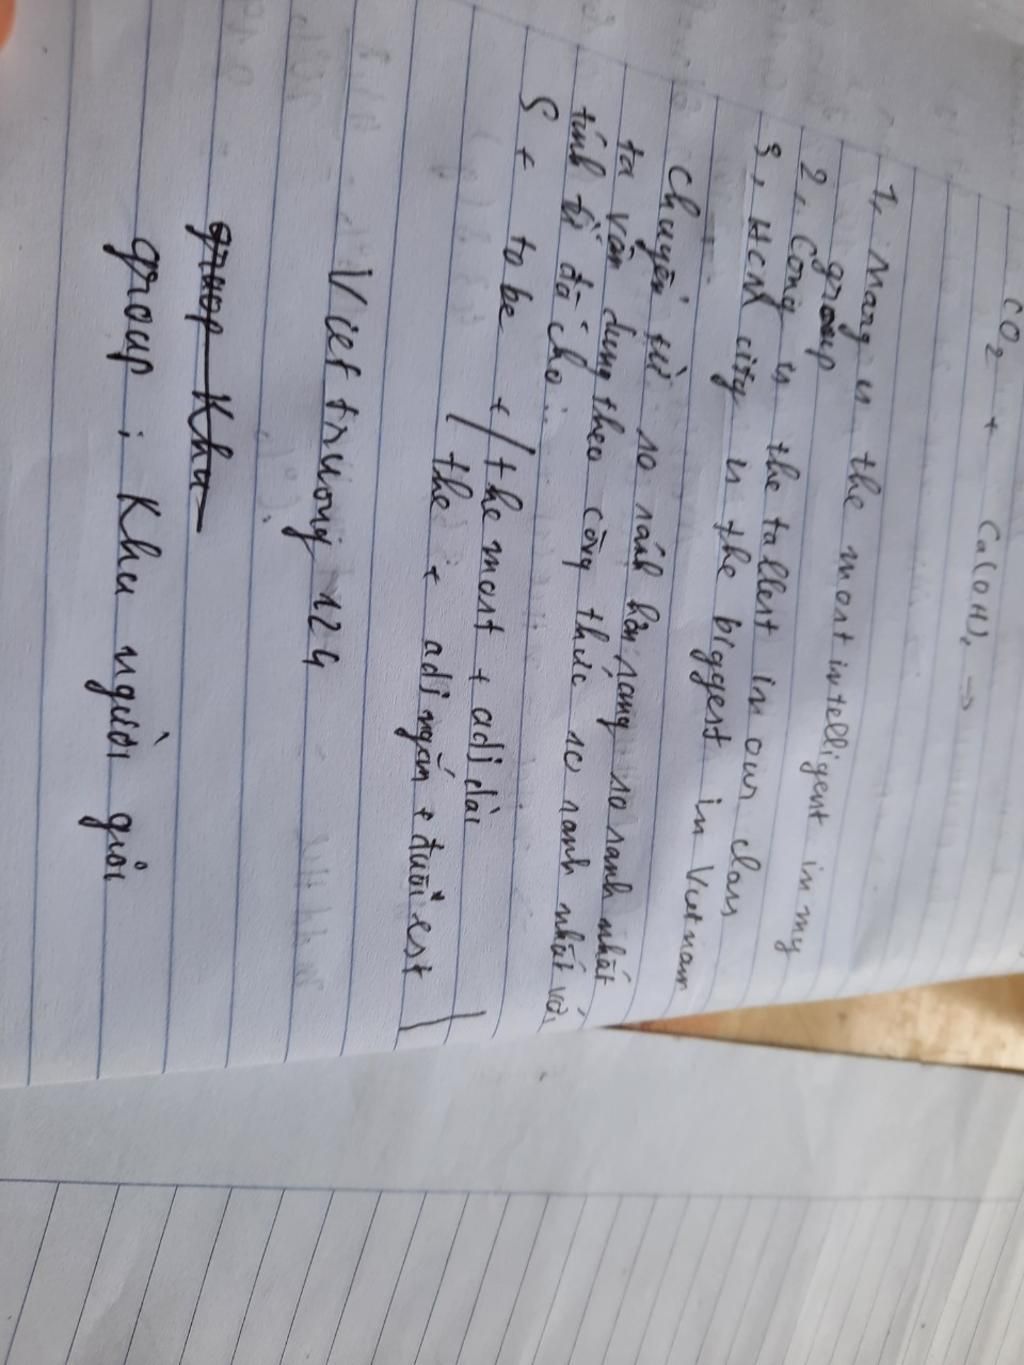 CO2 + Ca(OH)2 →
1, Mary is the most intelligent in my
group
2, Cong is the tallest in our class
3, HCM city is the biggest in Vietnam
Chuyển từ so sánh hơn sang so sanh nhất
ta vận dụng theo công thức so sanh nhất với
tính từ đã cho:
S + to be + / the most + adj dài
/ the + adj ngắn + đuôi est
Viettruong 124
gruop Khu
group : Khu người giỏi